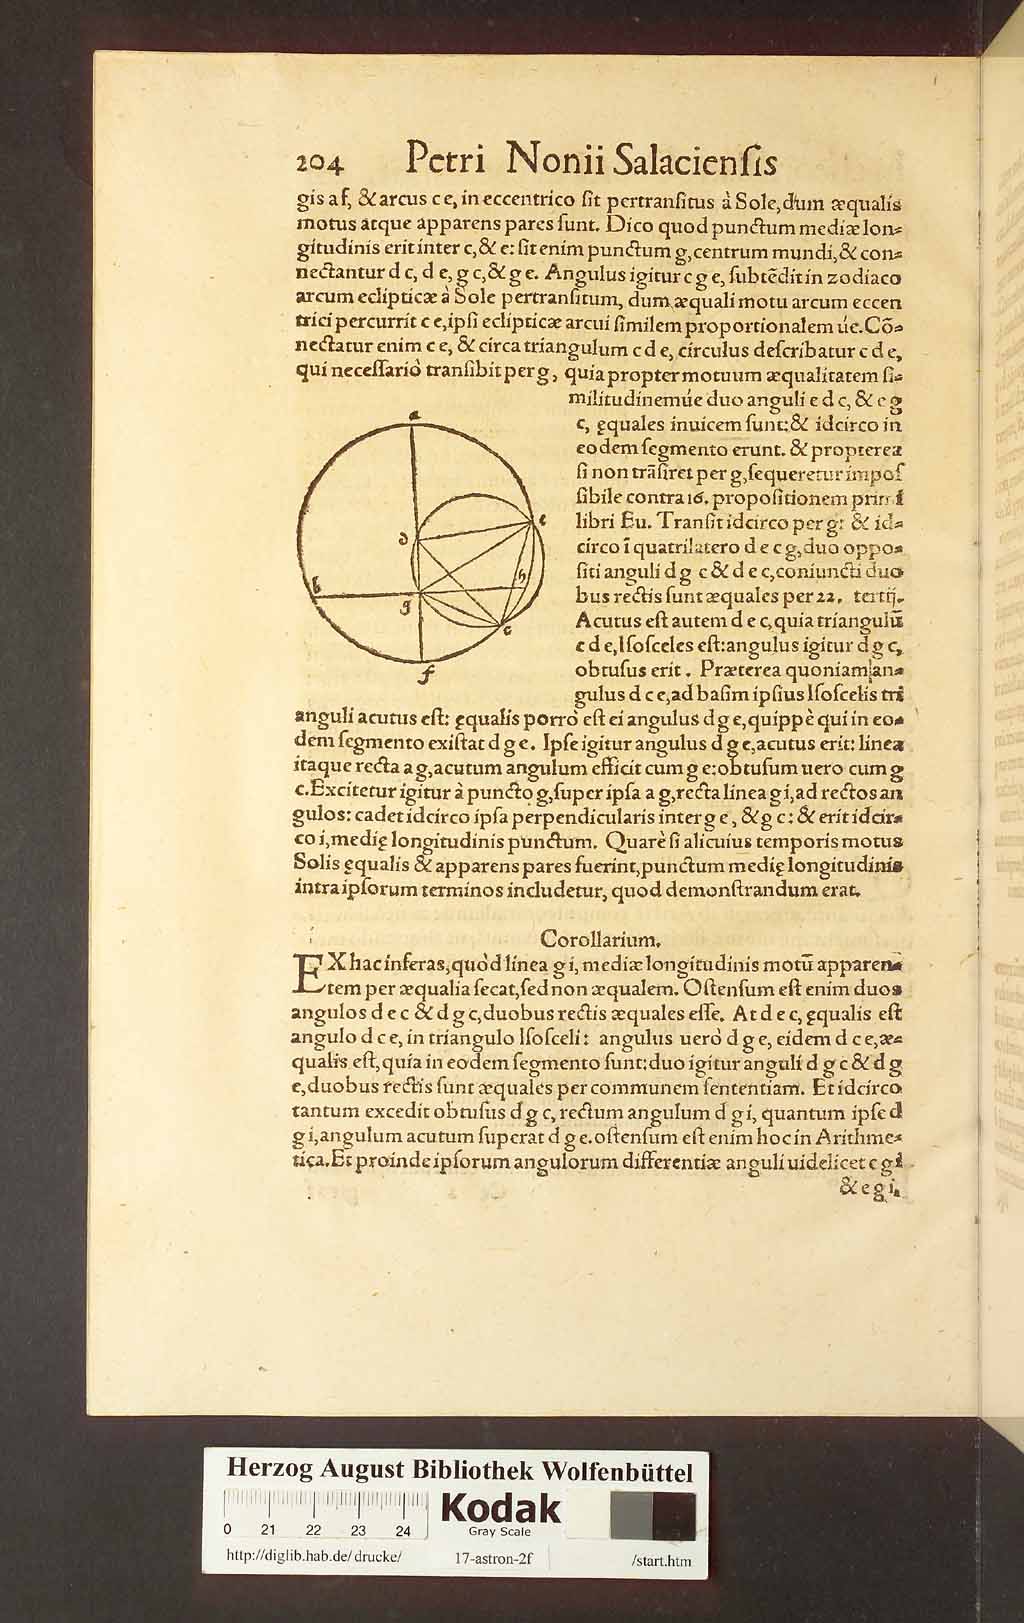 204 Petri Nonii Salaciensis
gis a f, & arcus c e, in eccentrico sit pertransitus à Sole, dum æqualis
motus atque apparens pares sunt. Dico quod punctum mediæ lon=
gitudinis erit inter c, & e: sit enim punctum g, centrum mundi, & con=
nectantur d c, d e, g c, & g e. Angulus igitur c g e, subtẽdit in zodiaco
arcum eclipticæ à Sole pertransitum, dum æquali motu arcum eccen
trici percurrit c e, ipsi eclipticæ arcui similem proportionalem úe. Cõ=
nectatur enim c e, & circa triangulum c d e, circulus describatur c d e,
qui necessariò transibit per g, quia propter motuum æqualitatem si=
militudinemúe duo anguli e d c, & e g
c, ęquales inuicem sunt: & idcirco in
eodem segmento erunt. & propterea
si non trãsiret per g, sequeretur impos
sibile contra 16. propositionem primi
libri Eu. Transit idcirco per g: & id=
circo ĩ quatrilatero d e c g, duo oppo=
siti anguli d g c & d e c, coniuncti duo
bus rectis sunt æquales per 22. tertij.
Acutus est autem d e c, quia triangulũ
c d e, Isosceles est: angulus igitur d g c,
obtusus erit. Præterea quoniam an=
gulus d c e, ad basim ipsius Isoscelis tri
anguli acutus est: ęqualis porrò est ei angulus d g e, quippè qui in eo=
dem segmento existat d g e. Ipse igitur angulus d g e, acutus erit: linea
itaque recta a g, acutum angulum efficit cum g e: obtusum uero cum g
c. Excitetur igitur à puncto g, super ipsa a g, recta linea g i, ad rectos an
gulos: cadet idcirco ipsa perpendicularis inter g e, & g c: & erit idcir=
co i, medię longitudinis punctum. Quarè si alicuius temporis motus
Solis ęqualis & apparens pares fuerint, punctum medię longitudinis
intra ipsorum terminos includetur, quod demonstrandum erat.
a
e
d
b
h
g
c
f
Corollarium.
EX hac inferas, quòd linea g i, mediæ longitudinis motũ apparen=
tem per æqualia secat, sed non æqualem. Ostensum est enim duos
angulos d e c & d g c, duobus rectis æquales esse. At d e c, ęqualis est
angulo d c e, in triangulo Isosceli: angulus uerò d g e, eidem d c e, æ=
qualis est, quia in eodem segmento sunt: duo igitur anguli d g c & d g
e, duobus rectis sunt æquales per communem sententiam. Et idcirco
tantum excedit obtusus d g c, rectum angulum d g i, quantum ipse d
g i, angulum acutum superat d g e. ostensum est enim hoc in Arithme=
tica. Et proinde ipsorum angulorum differentiæ anguli uidelicet c g i
& e g i,
Herzog August Bibliothek Wolfenbüttel
0 21 22 23 24
Kodak
Gray Scale
http://diglib.hab.de/drucke/ 17-astron-2f /start.htm